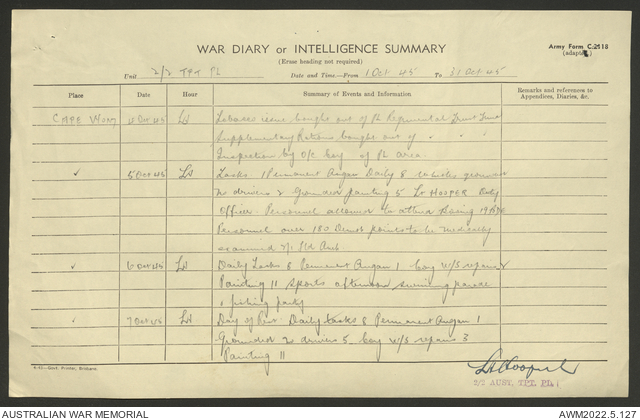 WAR DIARY or INTELLIGENCE SUMMARY
(Erase heading not required)
Army Form C.2118
(adapted)
Unit 2/2 TPT PL
Date and Time—From 1 Oct 45 To 31 Oct 45
Place Date Hour Summary of Events and Information Remarks and references to Appendices, Diaries, &c.
CAPE WOM 4 Oct 45 Tobacco issue bought out of PL Regimental Trust Fund
Supplementary Rations bought out of " " "
Inspection by O/C Coy of PL area.
✓ 5 Oct 45 Tasks. 1 Permanent Daily 8 vehicles
drivers 2 Grounded painting 5 Lt HOOPER Duty
Officer. Personnel allowed to attend 19
Personnel over 180 points to be medically
examined 2/1 Fld Amb
✓ 6 Oct 45 Daily Tasks 8 Permanent 1 Coy W/S repairs
Painting 11 Sports afternoon swimming parade
& fishing party
✓ 7 Oct 45 Day of Rest Daily tasks 8 Permanent 1
Grounded drivers 5 Coy W/S repairs 3
Painting 11
Hooper Lt
2/2 AUST. TPT. PL.
AUSTRALIAN WAR MEMORIAL
AWM2022.5.127